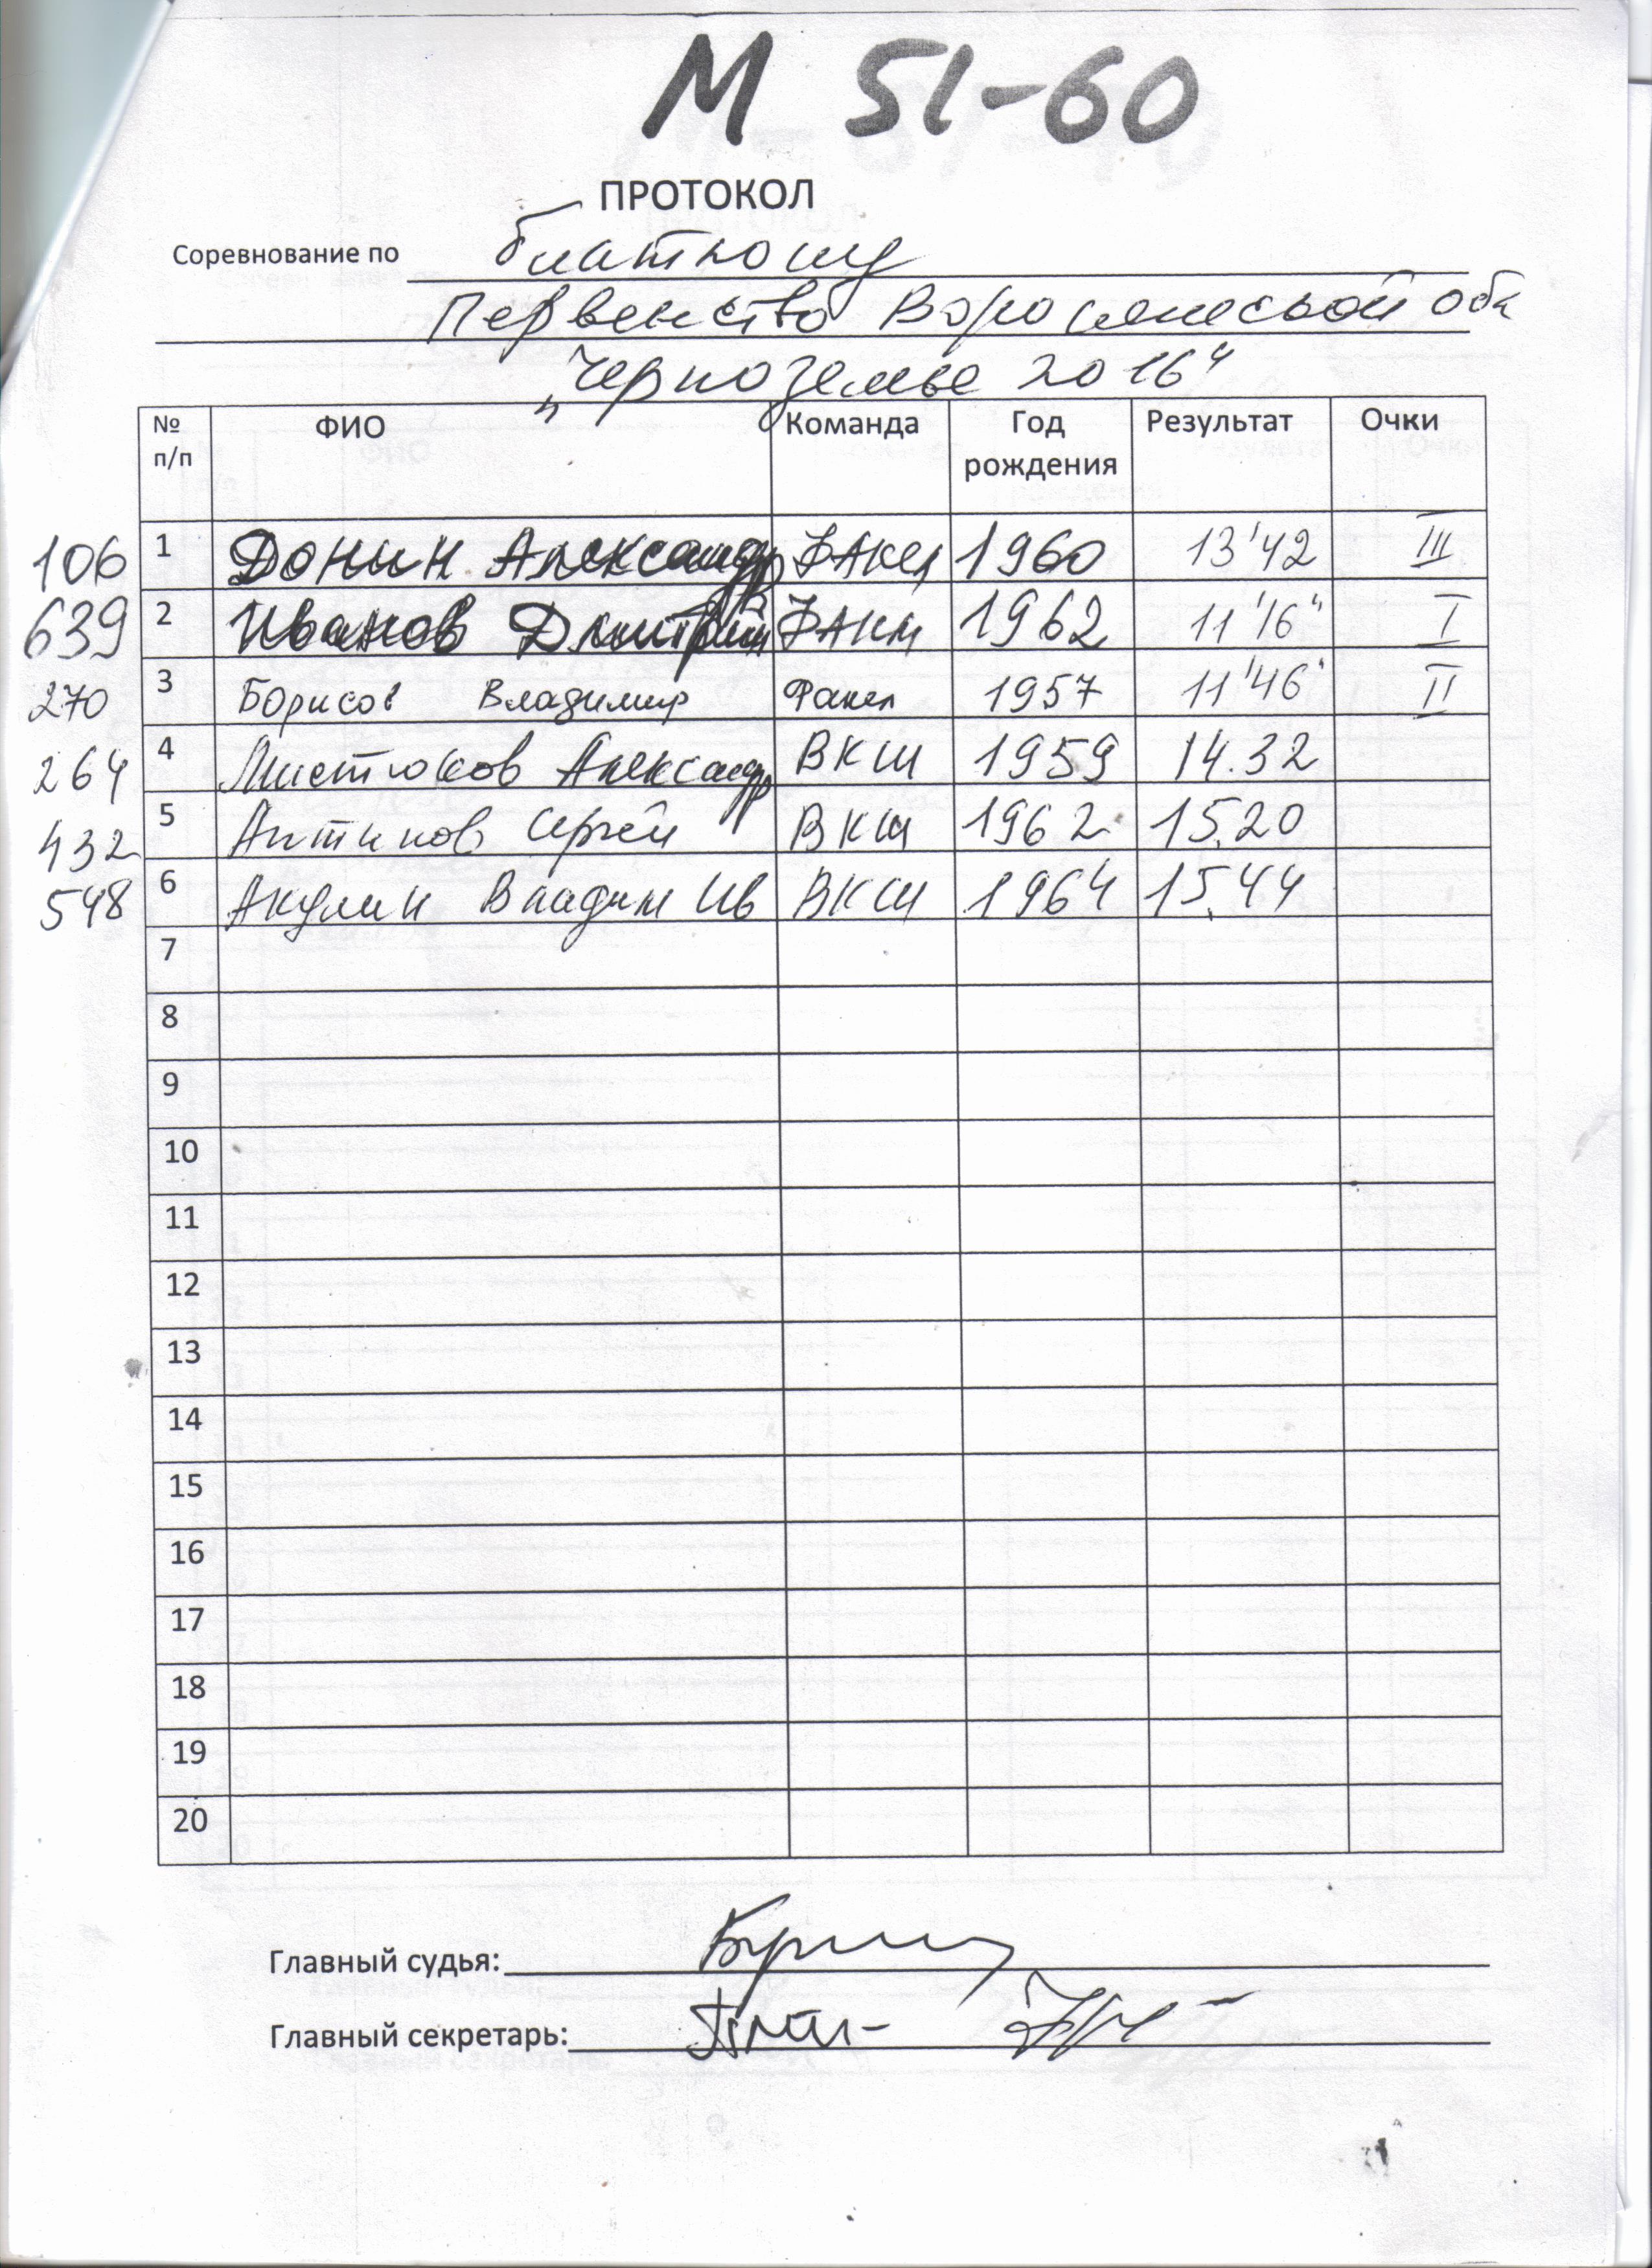 М 51-60
ПРОТОКОЛ
Соревнование по биатлону
Первенство Воронежской обл
"Черноземье 2016"
№ п/п ФИО Команда Год рождения Результат Очки
106 1 Донин Александр Факел 1960 13'42 III
639 2 Иванов Дмитрий Факел 1962 11'16" I
270 3 Борисов Владимир Факел 1957 11'46" II
264 4 Листюков Александр ВКШ 1959 14.32
432 5 Антипов Сергей ВКШ 1962 15.20
548 6 Акулин Владим Ив ВКШ 1964 15.44
7
8
9
10
11
12
13
14
15
16
17
18
19
20
Главный судья:
Главный секретарь: